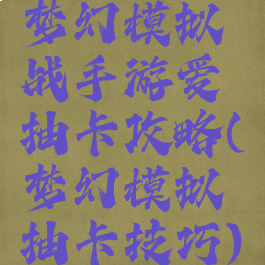 梦幻模拟
战手游爱
抽卡攻略(
梦幻模拟
抽卡技巧)